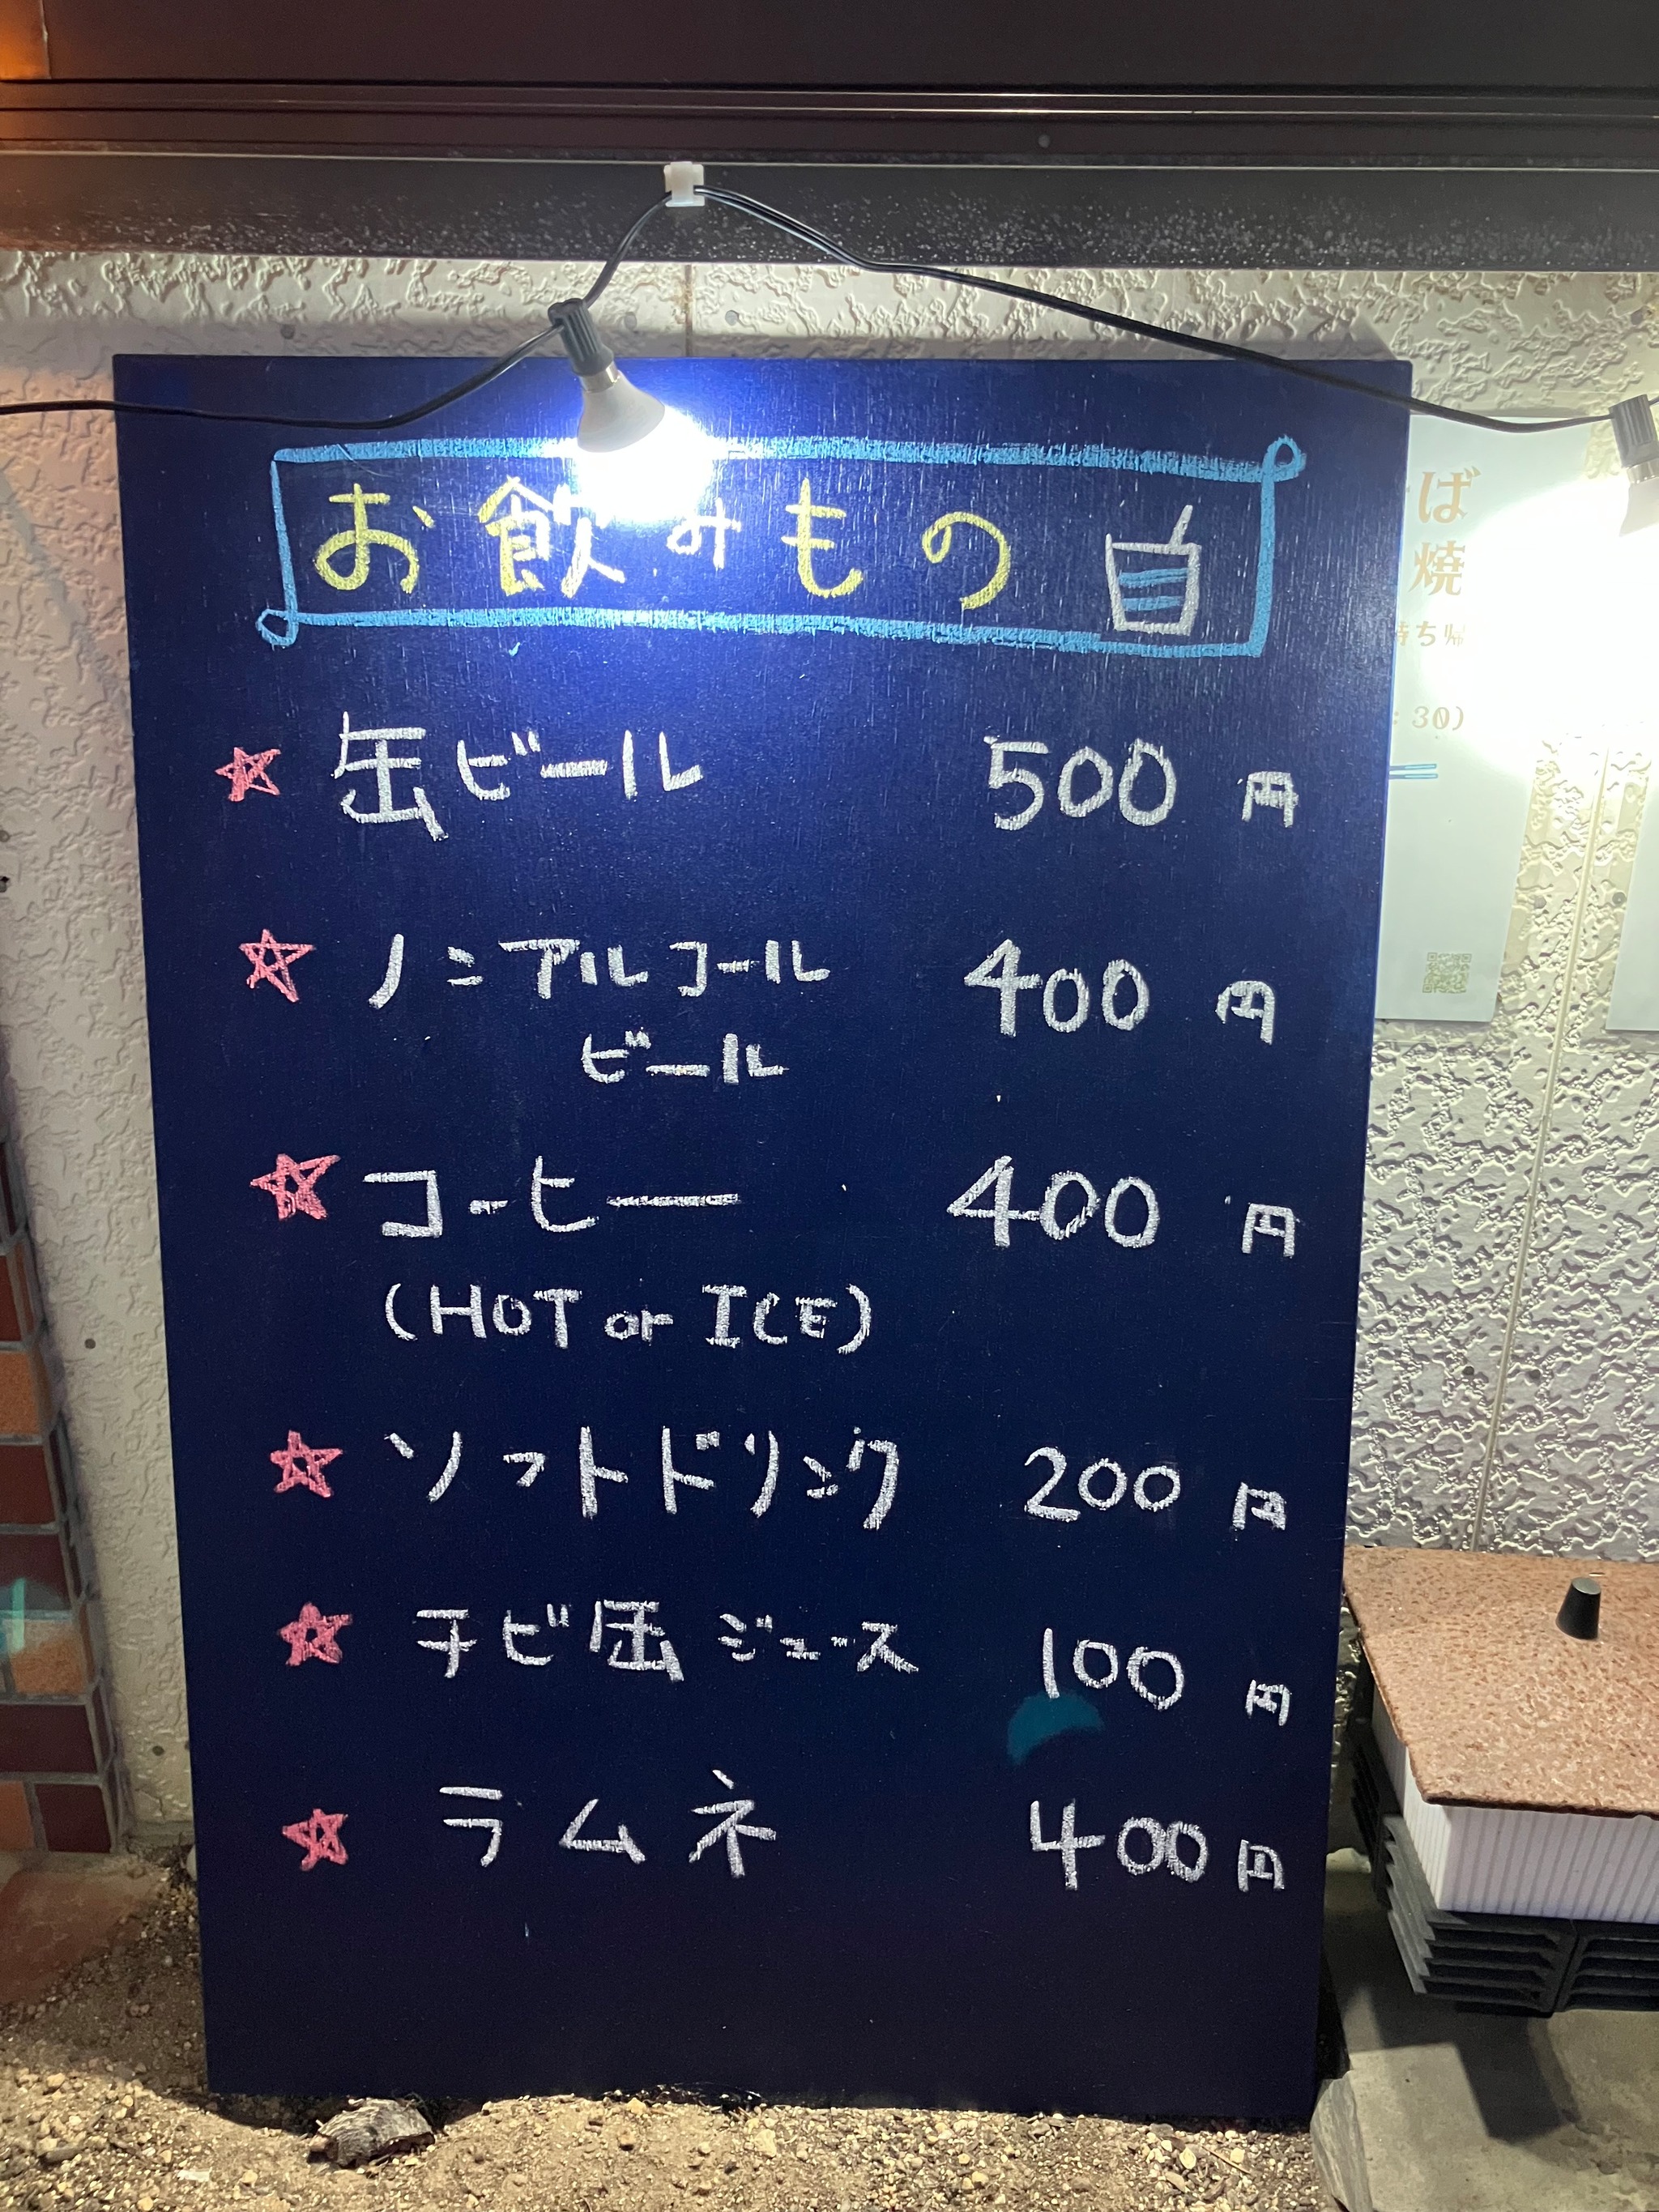 お飲みもの
☆ 缶ビール 500円
☆ ノンアルコール 400円
ビール
☆ コーヒー 400円
(HOT or ICE)
☆ ソフトドリンク 200円
☆ チビ缶ジュース 100円
☆ ラムネ 400円
ば
焼
持ち帰
:30)